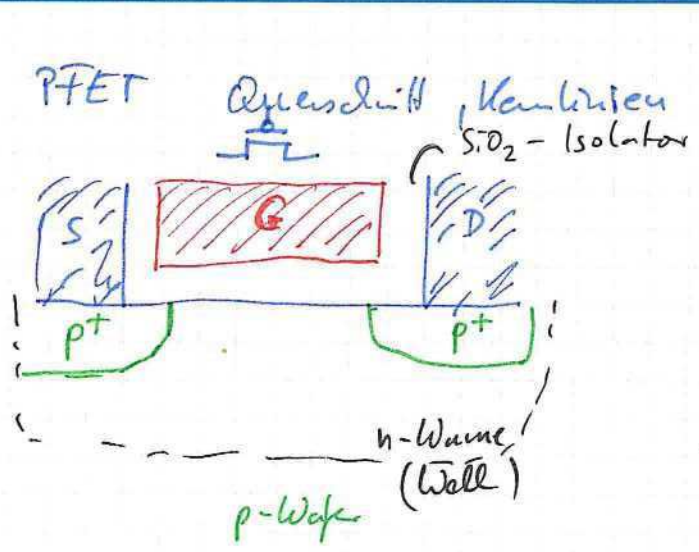 PFET Querschnitt, Kennlinien
SiO₂ - Isolator
S G D
p+ p+
n-Wanne
(Well)
p-Wafer